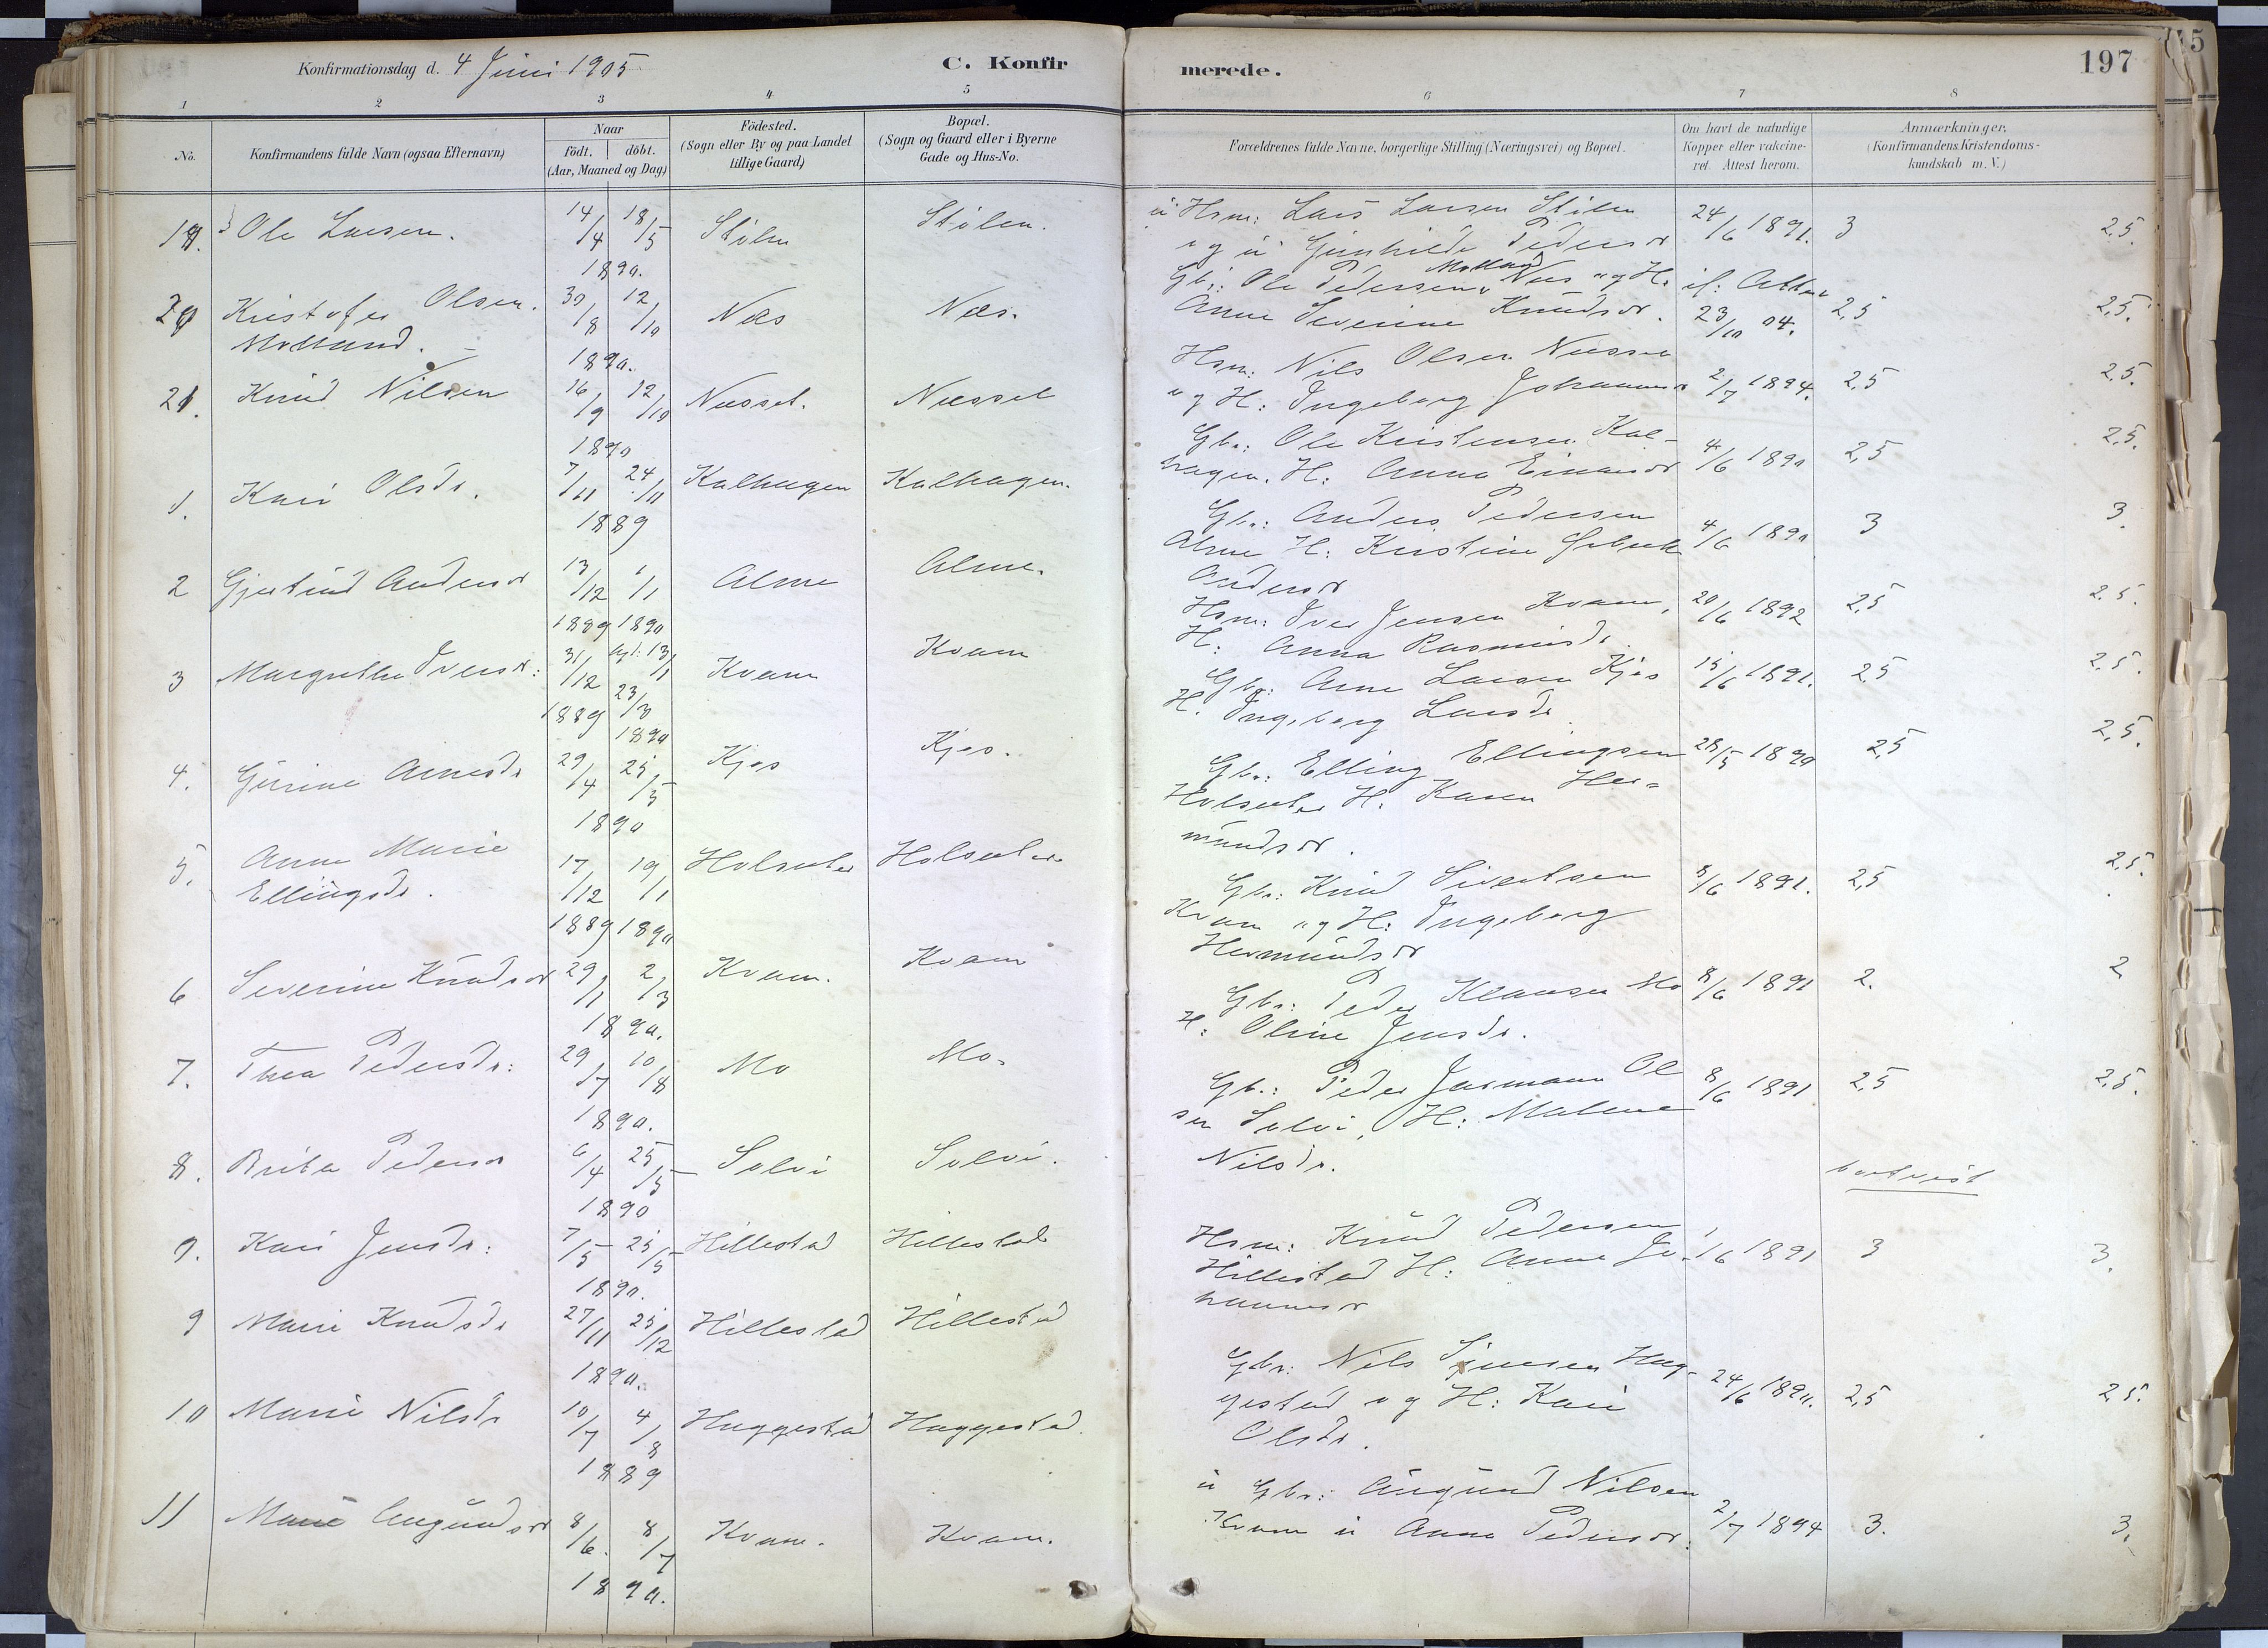 Konfirmationsdag d. 4 Juni 1905
C. Konfirmerede.
197
1 2 3 4 5 6 7 8
No.
Konfirmandens fulde Navn (ogsaa Efternavn)
Naar
Födt. döbt.
(Aar, Maaned og Dag)
Födested.
(Sogn eller By og paa Landet
tillige Gaard)
Bopæl.
(Sogn og Gaard eller i Byerne
Gade og Hus-No.
Forældrenes fulde Navne, borgerlige Stilling (Næringsvei) og Bopæl.
Om havt de naturlige
Kopper eller vakcine-
ret. Attest herom.
Anmærkninger,
(Konfirmandens Kristendoms-
kundskab m. V.)
Ole Larsen. 14/4 18/5 1890. Stölen Stölen.
Hsm: Lars Larsen Stölen
og Gunhilde Pedersdr
24/6 1891. 3 2,5.
20 Kristofer Olsen. 30/8 12/10 1890. Næs Næs.
Molland.
Gbr: Ole Pedersen Molland Næs og H.
Anne Severine Knudsdr.
if. Attest 23/10 04. 2,5 2,5.
21. Knud Nilsen 16/9 12/10 1890 Næsset. Næsset
Hsm: Nils Olsen Næsset
og H: Ingeborg Johannesdr
2/7 1894. 2,5 2,5.
1. Kari Olsdr. 7/11 24/11 1889 Kalhagen Kalhagen.
Gbr: Ole Kristensen Kal-
hagen. H: Anna Einarsdr
4/6 1890 2,5 2,5.
2 Gjertrud Andersdr 13/12 1889 1/1 1890 Alme Alme.
Gbr: Anders Pedersen
Alme H: Kristine
Andersdr
4/6 1890 3 3.
3 Margrethe Iversdr: 31/12 1889 13/1 23/3 1890 Kvam Kvam
Hsm: Iver Jensen Kvam,
H: Anna Rasmusdr.
20/6 1892 2,5 2.5.
4. Gurine Arnesdr 29/4 25/5 1890 Kjos Kjos.
Gbr: Arne Larsen Kjos
H. Ingeborg Larsdr
15/6 1891. 2,5 2.5.
5. Anne Marie
Ellingsdr. 17/12 1889 19/1 1890 Holsæter Holsæter
Gbr: Elling Ellingsen
Holsæter H. Karen Her-
mundsdr.
28/5 1890 2,5 2,5.
6 Severine Knudsdr 29/1 2/3 1890. Kvam. Kvam
Gbr: Knud Sivertsen
Kvam og H: Ingeborg
Hermundsdr
8/6 1891. 2,5 2,5.
7. Thea Pedersdr: 29/7 10/8 1890. Mo Mo.
Gbr: Peder Klausen Mo
H: Oline Jensdr.
8/6 1891 2. 2
8. Brita Pedersdr 6/4 25/5 1890 Solvi Solvi.
Gbr: Peder Jasmann Ol
sen Solvi, H: Malene
Nilsdr.
8/6 1891 2,5 2,5.
9. Kari Jensdr: 7/5 25/5 1890. Hillestad Hillestad
bortreist
9 Marie Knudsdr 27/11 25/12 1890. Hillestad Hillestad
Hsm: Knud Pedersen
Hillestad H: Anne Jo-
hannesdr
1/6 1891 3 3.
10 Marie Nilsdr 10/7 4/8 1889 Haggestad Haggestad.
Gbr: Nils Hag-
gestad og H: Kari
Olsdr.
24/6 1890. 2,5 2,5.
11 Marie Augundsdr 8/6. 8/7 1890. Kvam. Kvam.
Gbr: Augund Nilsen
Kvam Anna Pedersdr.
2/7 1894 3. 3.